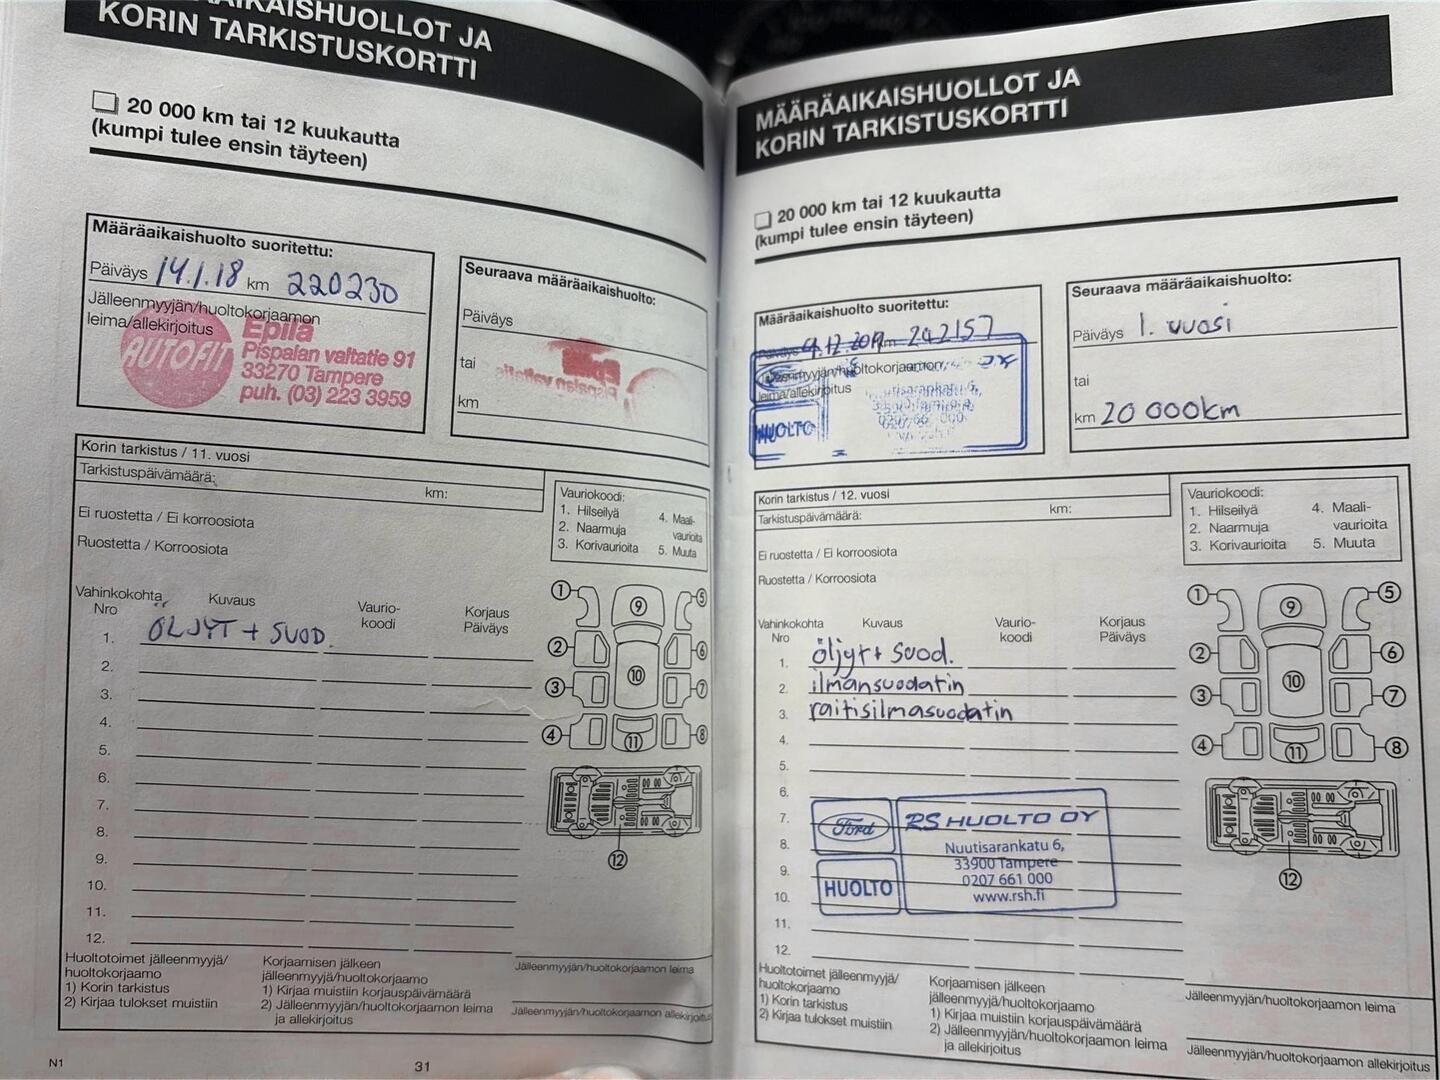 MÄÄRÄAIKAISHUOLLOT JA
KORIN TARKISTUSKORTTI
20 000 km tai 12 kuukautta
(kumpi tulee ensin täyteen)
Määräaikaishuolto suoritettu:
Päiväys 14.1.18 km 220230
Jälleenmyyjän/huoltokorjaamon
leima/allekirjoitus
AUTOFIT
Epilä
Pispalan valtatie 91
33270 Tampere
puh. (03) 223 3959
Seuraava määräaikaishuolto:
Päiväys
tai
km
Korin tarkistus / 11. vuosi
Tarkistuspäivämäärä:
km:
Ei ruostetta / Ei korroosiota
Ruostetta / Korroosiota
Vauriokoodi:
1. Hilseilyä
2. Naarmuja
3. Korivaurioita
4. Maali-
vaurioita
5. Muuta
Vahinkokohta
Nro
Kuvaus
Vaurio-
koodi
Korjaus
Päiväys
1. ÖLJYT + SUOD.
2.
3.
4.
5.
6.
7.
8.
9.
10.
11.
12.
1
2
3
4
5
6
7
8
9
10
11
12
Huoltotoimet jälleenmyyjä/
huoltokorjaamo
1) Korin tarkistus
2) Kirjaa tulokset muistiin
Korjaamisen jälkeen
jälleenmyyjä/huoltokorjaamo
1) Kirjaa muistiin korjauspäivämäärä
2) Jälleenmyyjän/huoltokorjaamon leima
ja allekirjoitus
Jälleenmyyjän/huoltokorjaamon leima
Jälleenmyyjän/huoltokorjaamon allekirjoitus
N1
31
MÄÄRÄAIKAISHUOLLOT JA
KORIN TARKISTUSKORTTI
20 000 km tai 12 kuukautta
(kumpi tulee ensin täyteen)
Määräaikaishuolto suoritettu:
Päiväys 9.12.2019 km 242157
Jälleenmyyjän/huoltokorjaamon
leima/allekirjoitus
HUOLTO
Seuraava määräaikaishuolto:
Päiväys 1. vuosi
tai
km 20 000km
Korin tarkistus / 12. vuosi
Tarkistuspäivämäärä:
km:
Ei ruostetta / Ei korroosiota
Ruostetta / Korroosiota
Vauriokoodi:
1. Hilseilyä
2. Naarmuja
3. Korivaurioita
4. Maali-
vaurioita
5. Muuta
Vahinkokohta
Nro
Kuvaus
Vaurio-
koodi
Korjaus
Päiväys
1. öljyt + suod.
2. ilmansuodatin
3. raitisilmasuodatin
4.
5.
6.
7.
8.
9.
10.
11.
12.
Ford
HUOLTO
RS HUOLTO OY
Nuutisarankatu 6,
33900 Tampere
0207 661 000
www.rsh.fi
1
2
3
4
5
6
7
8
9
10
11
12
Huoltotoimet jälleenmyyjä/
huoltokorjaamo
1) Korin tarkistus
2) Kirjaa tulokset muistiin
Korjaamisen jälkeen
jälleenmyyjä/huoltokorjaamo
1) Kirjaa muistiin korjauspäivämäärä
2) Jälleenmyyjän/huoltokorjaamon leima
ja allekirjoitus
Jälleenmyyjän/huoltokorjaamon leima
Jälleenmyyjän/huoltokorjaamon allekirjoitus